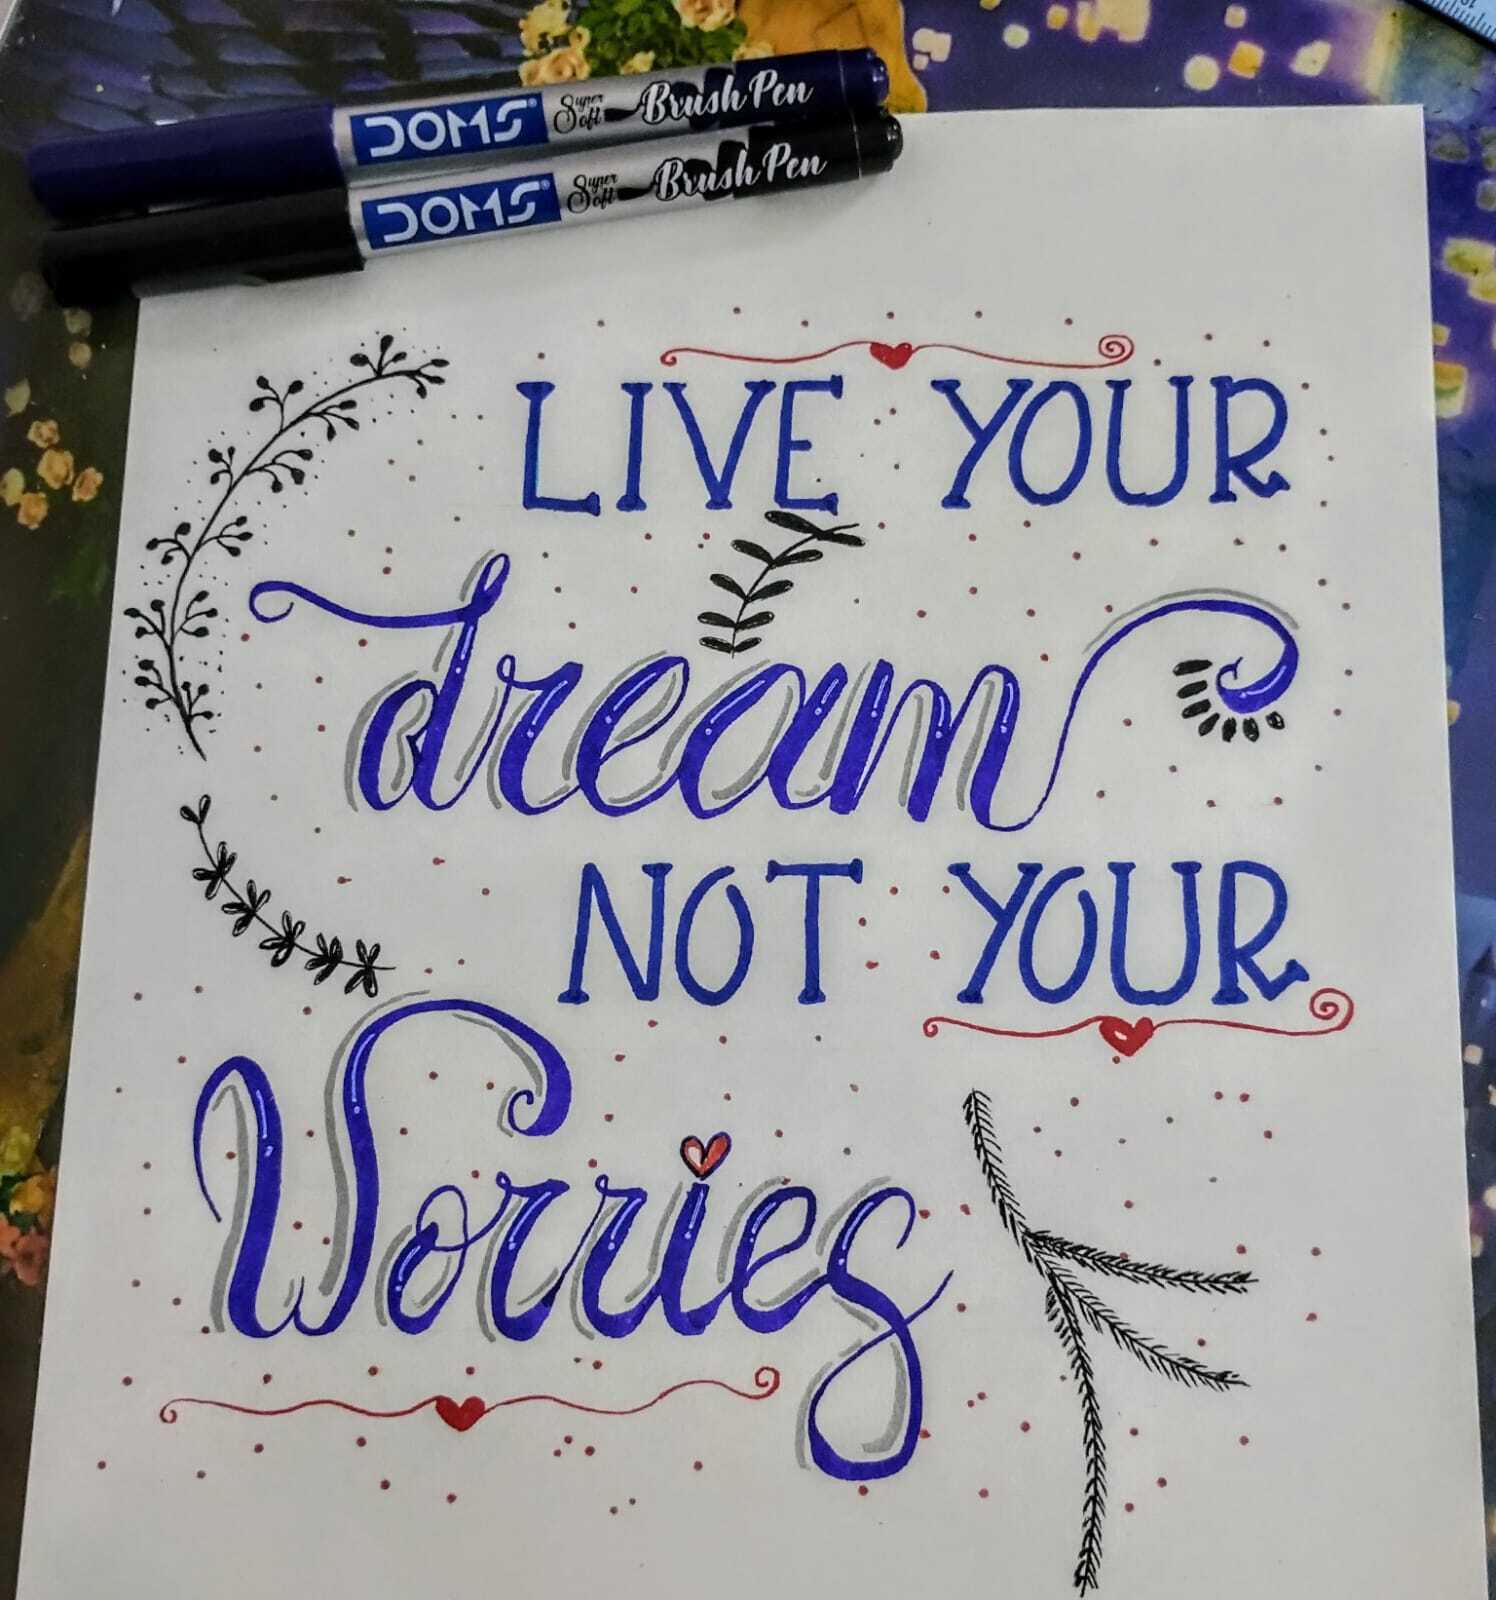 DOMS Super Soft Brush Pen
DOMS Super Soft Brush Pen
LIVE YOUR
dream
NOT YOUR
Worries